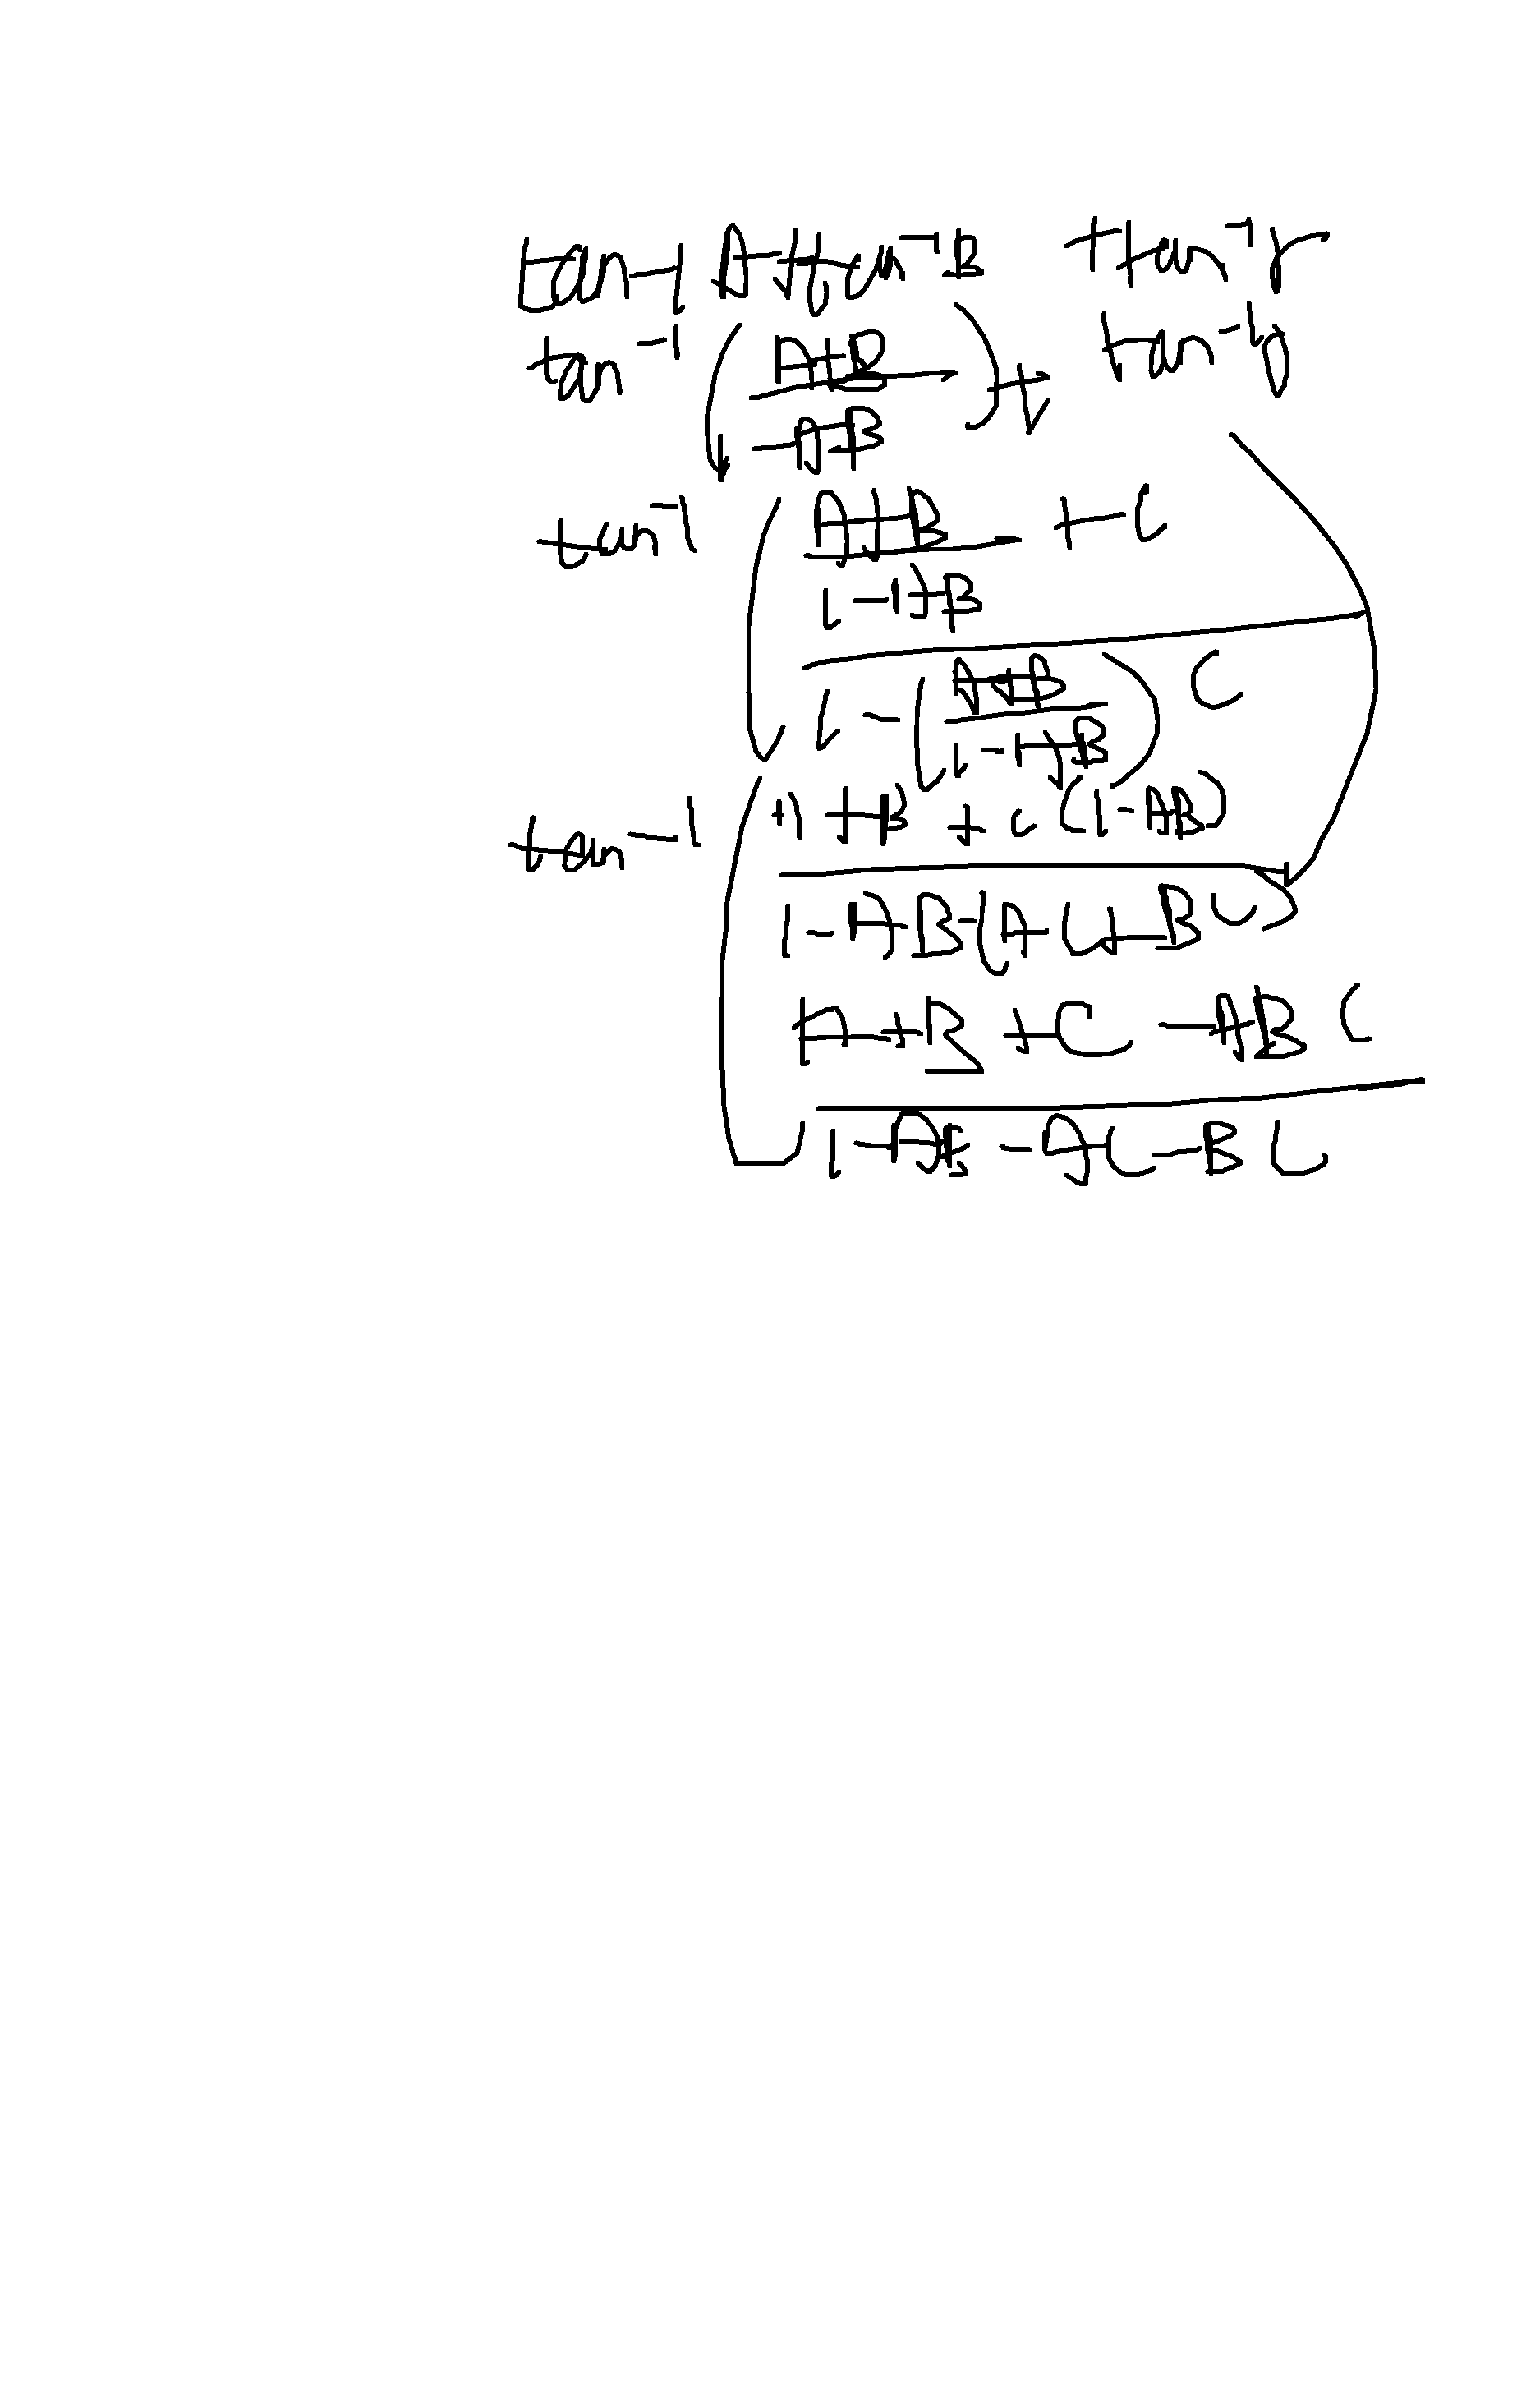 tan-1 A + tan⁻¹B + tan⁻¹γ
tan⁻¹ (A+B + tan⁻¹
1 - AB)
tan⁻¹ (A+B + C
1 - AB
1 - (A+B C
1 - AB)
tan⁻¹ (A+B + c(1-AB)
1-AB-(AC+BC)
A+B+C-ABC
1-AB-AC-BC